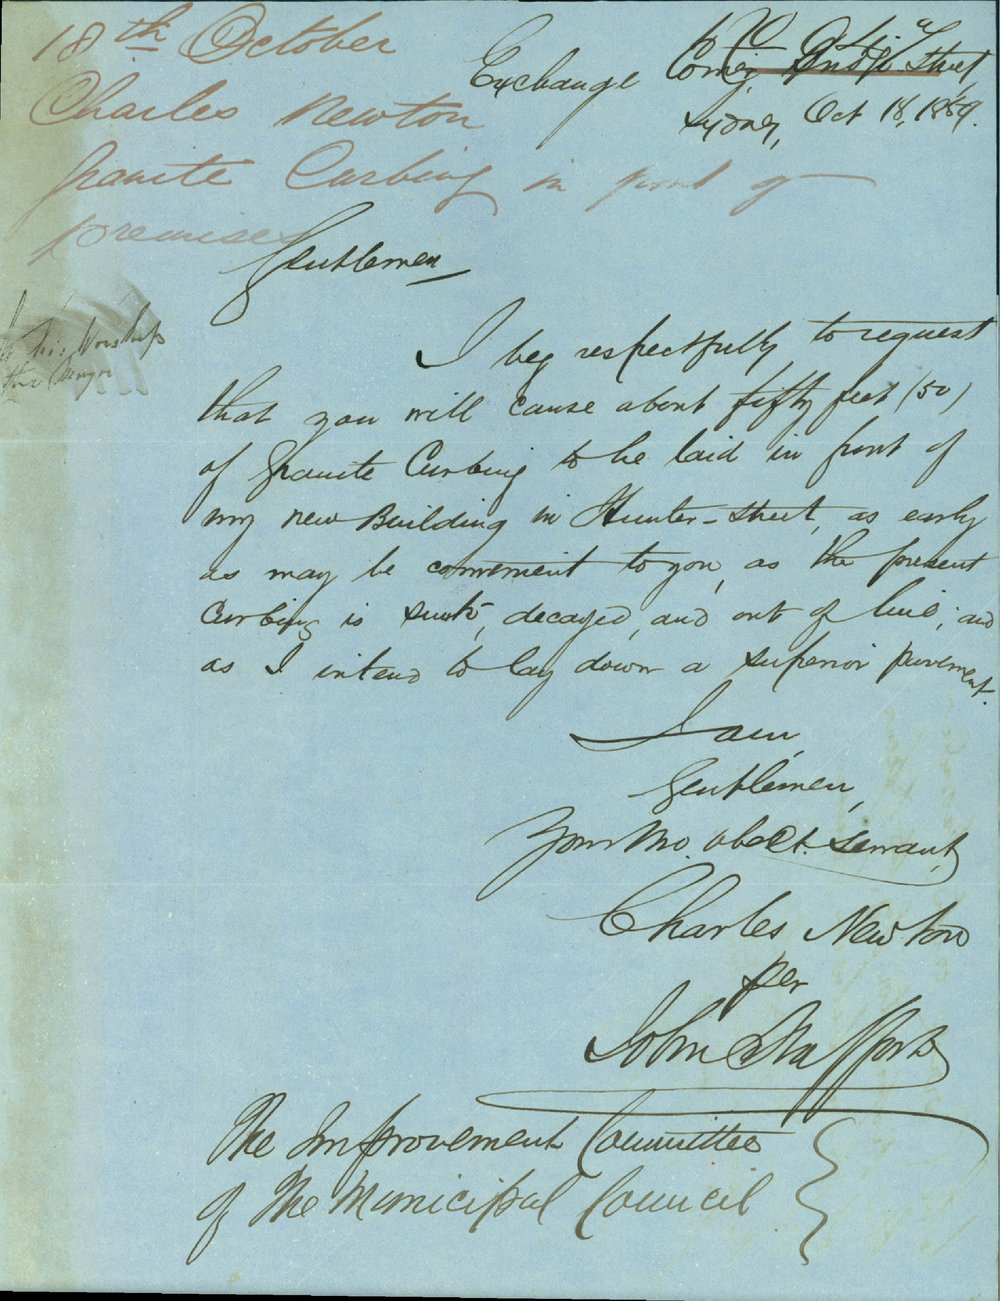 18th October
Charles Newton
Granite Curbing in front of
premises
Exchange Corner, Street,
Sydney, Oct 18, 1859.
Gentlemen
To his Worship
the Mayor
I beg respectfully to request
that you will cause about fifty feet (50)
of Granite Curbing to be laid in front of
my new Building in Hunter-street, as early
as may be convenient to you, as the present
Curbing is sunk, decayed, and out of line, and
as I intend to lay down a superior pavement.
I am,
Gentlemen,
Your Mo. Obedt. Servant,
Charles Newton
per
John Stafford
The Improvement Committee
of The Municipal Council